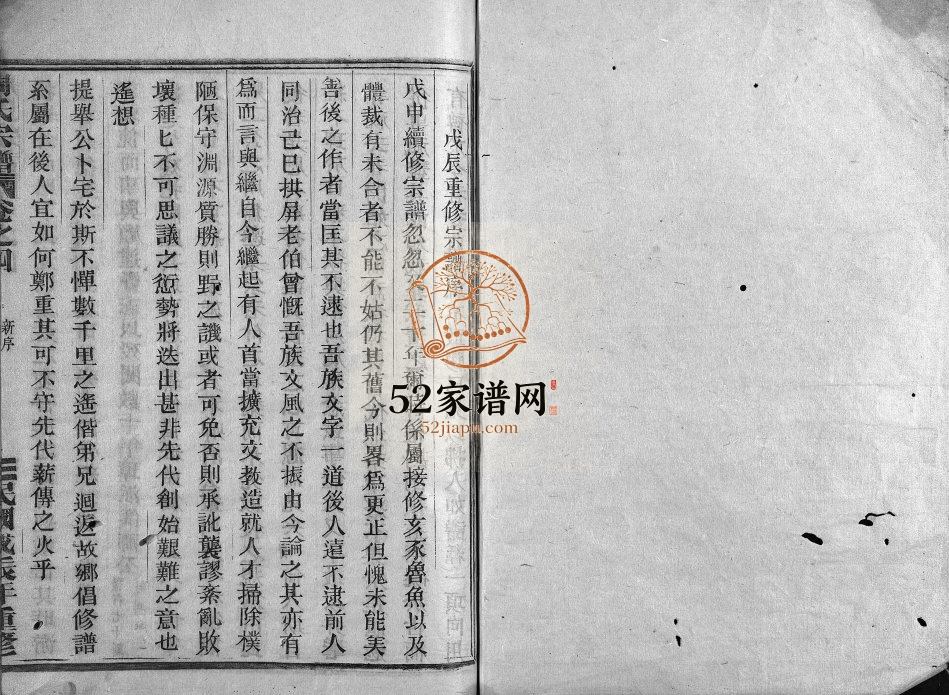 戊辰重修宗譜
戊申續修宗譜忽忽
年爾
係屬接修亥豕魯魚以及
體裁有未合者不能不姑仍其舊今則畧為更正但愧未能美
善後之作者當匡其不逮也吾族文字一道後人遠不逮前人
同治己巳拱屏老伯曾慨吾族文風之不振由今論之其亦有
爲而言與繼自今繼起有人首當擴充文教造就人才掃除樸
陋保守淵源質勝則野之譏或者可免否則承訛襲謬紊亂敗
壞種匕不可思議之惡勢將迭出甚非先代創始艱難之意也
遙想
提舉公卜宅於斯不憚數千里之遙偕弟兄迴返故鄉倡修譜
系屬在後人宜如何鄭重其可不守先代薪傳之火乎
氏宗譜
卷之四
新序
民國戊辰年重修
52家谱网
52jiapu.com